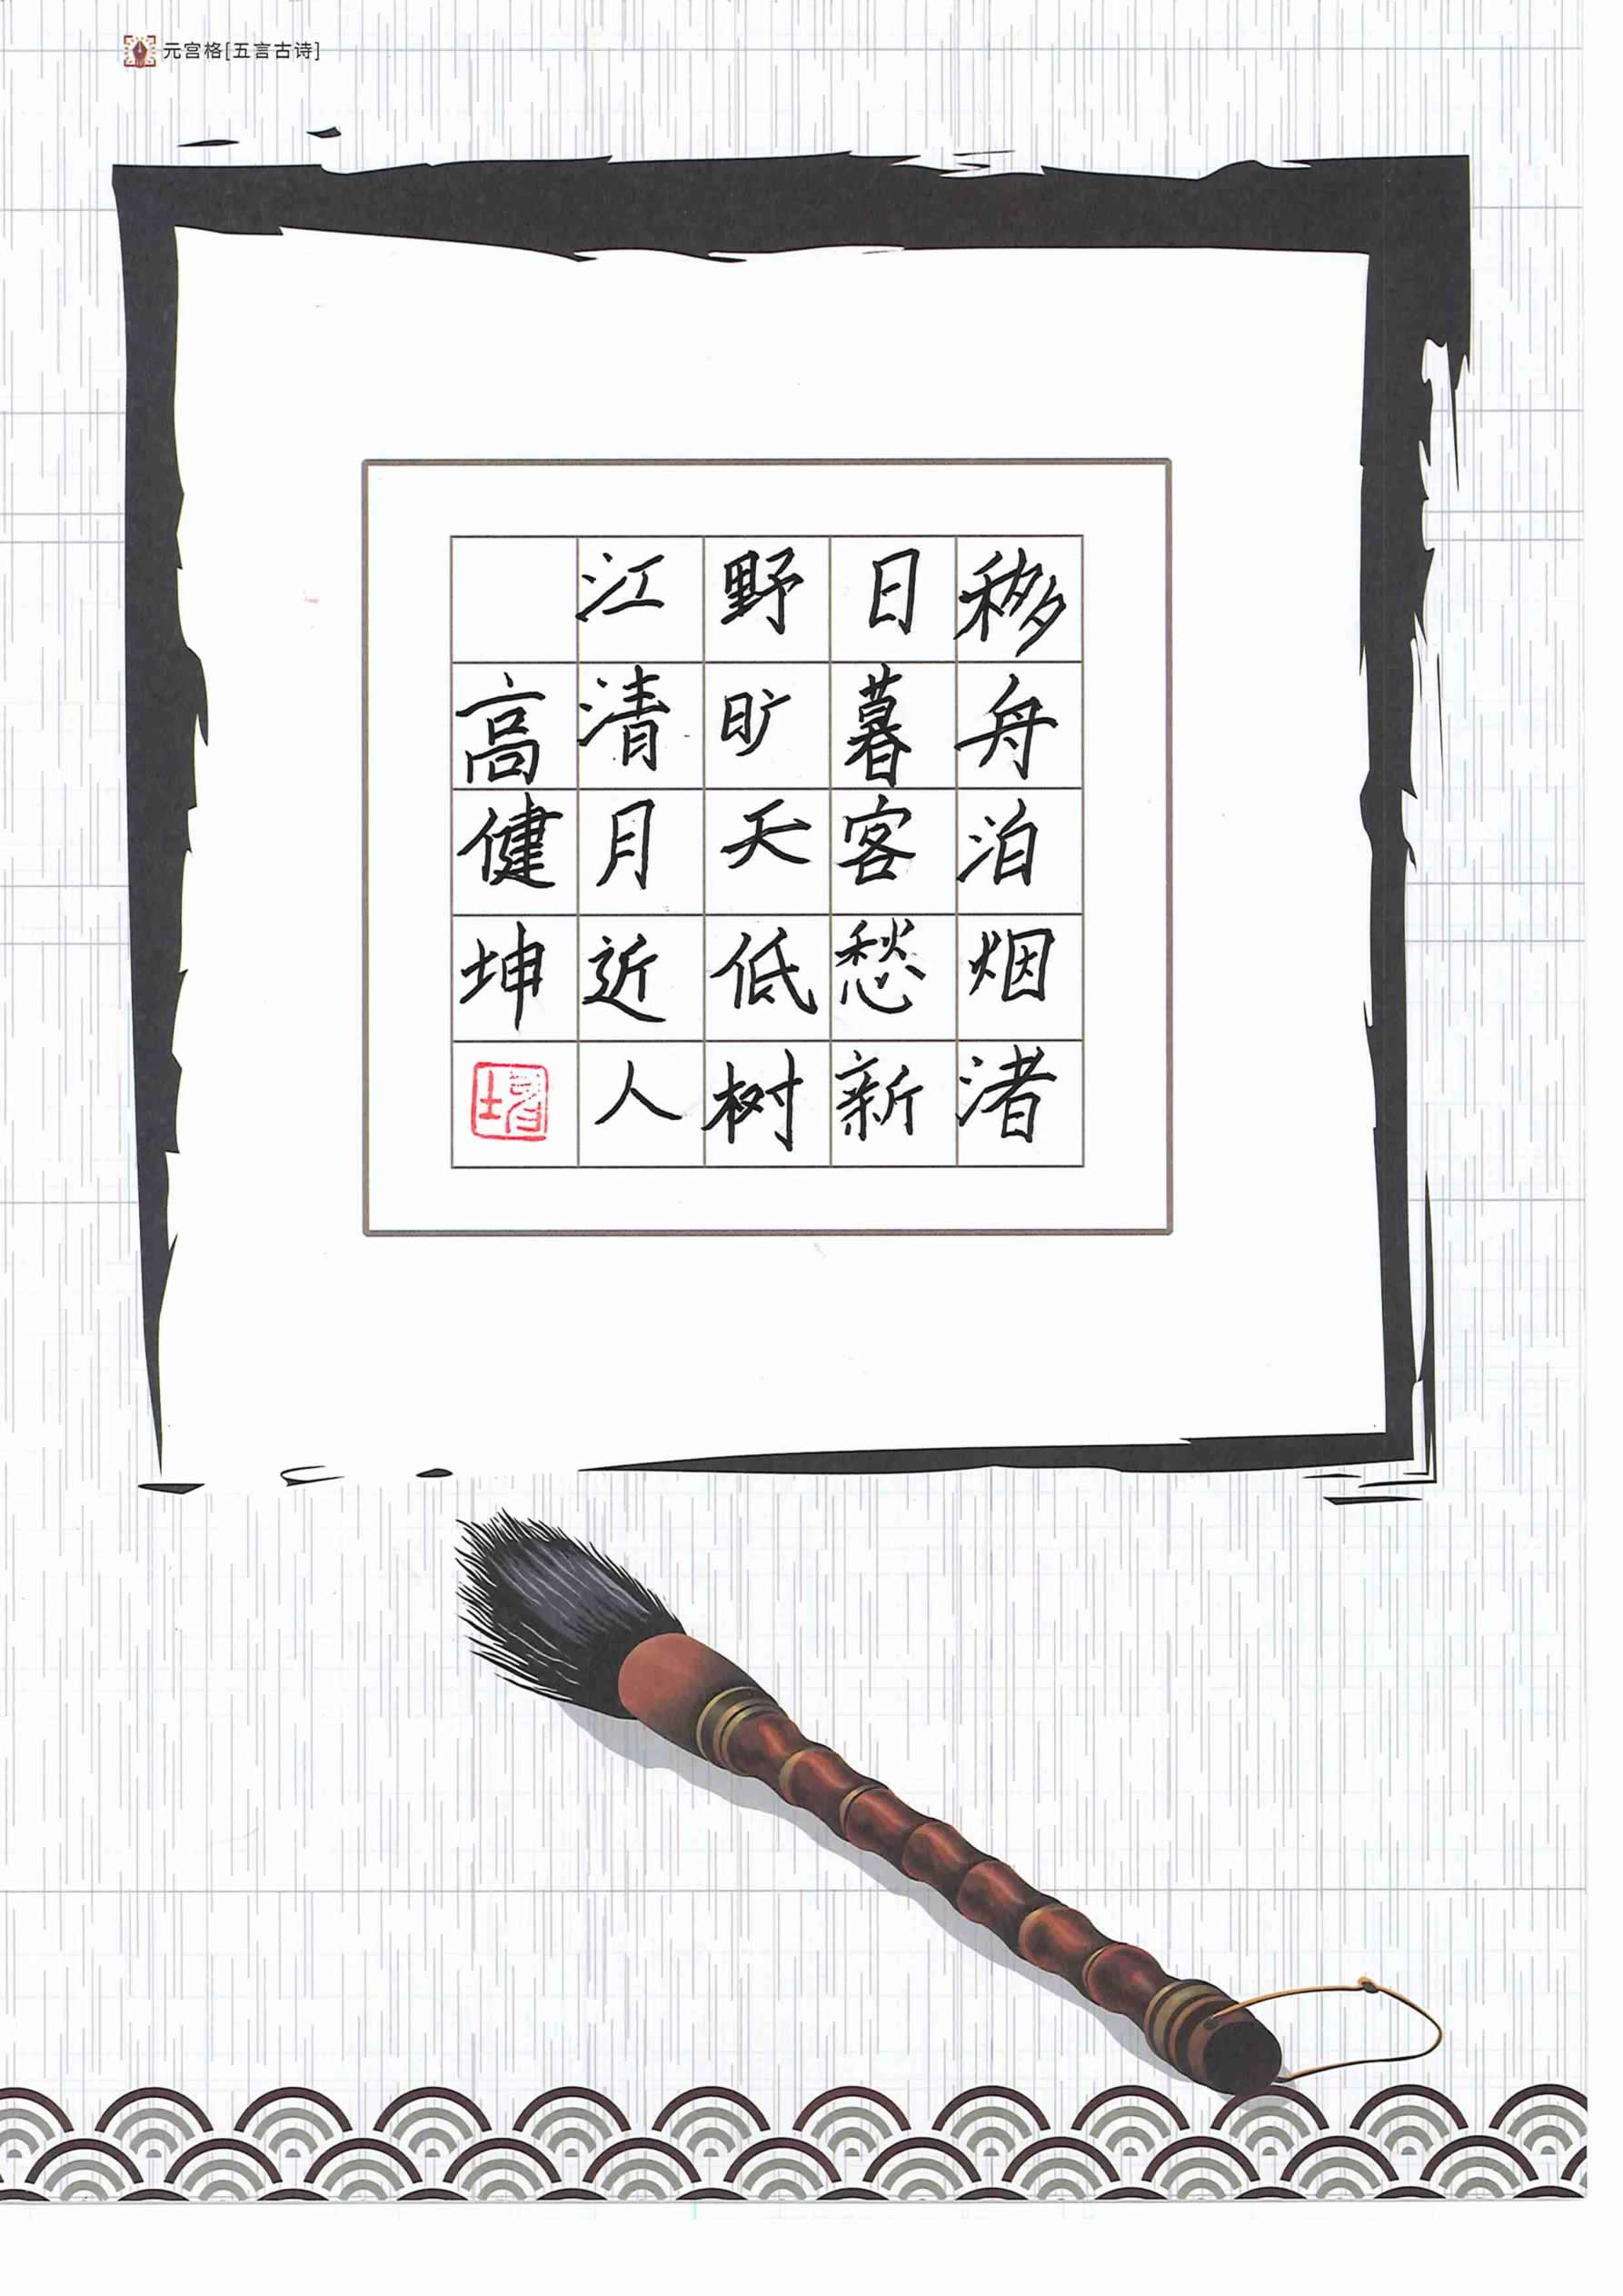 元宫格[五言古诗]
移舟泊烟渚
日暮客愁新
野旷天低树
江清月近人
高健坤